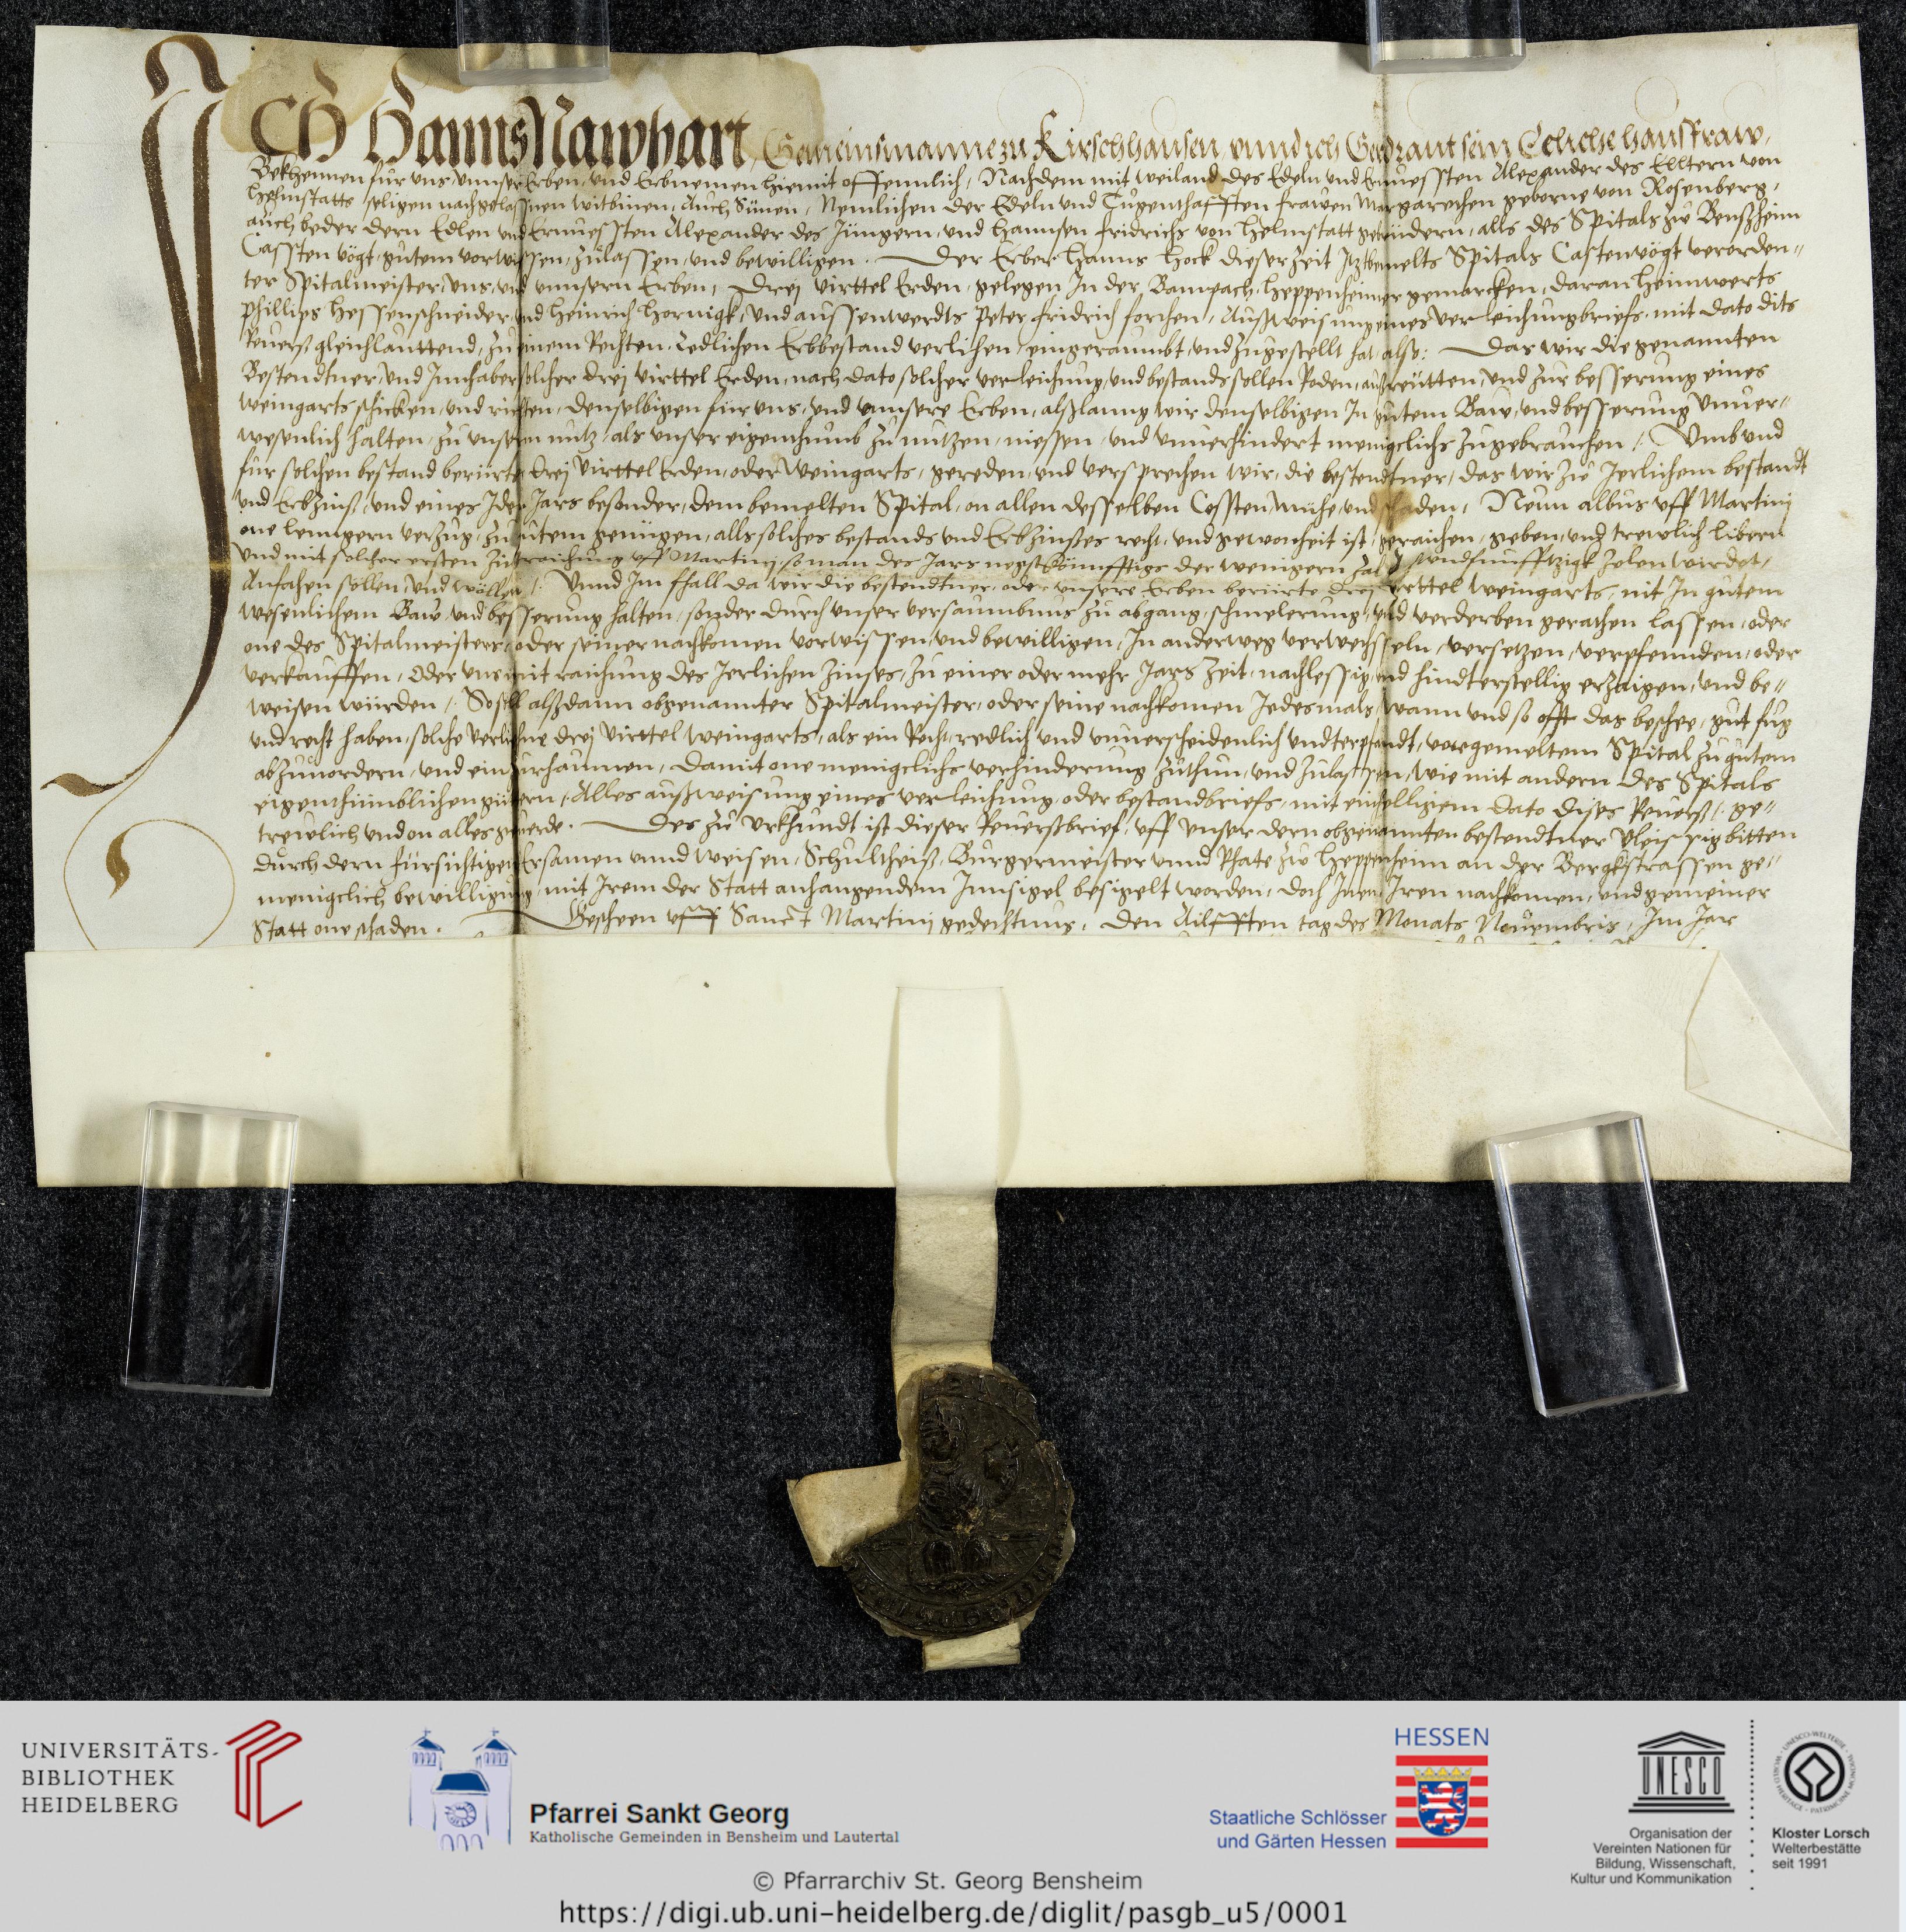 ICH Hanns Nawhart, Gemeinsmanne zu Kirschhausen, vnnd ich Gedraut sein Eeliche haußfraw,
Bekhennen für vns vnnser Erben, vnd Erbnemen hiemit offennlich, Nachdem mit weiland des Edeln vnd Ernuessten Alexander des Elltern von
Helmstatts seligen nachgelassnen witbinen, Auch Sünen, Nemlichen der Edeln vnd Tugenthafften frawen Margarethen geborne von Rosenberg,
auch beder dern Edlen vnd Ernuessten Alexander des Jüngern, vnd Hannsen fridrichs von Helmstatt gebrüdern, alls des Spitals zu Benßheim
Cassten vögt, gutem vorwissen, zulassen, vnd bewilligen. Der Erber Hanns Hock dieser Zeit Itztbemelts Spitals Castenvögt verorden-
ter Spitalmeister, vns, vnd vnnsern Erben, Drej virttel Erden, gelegen In der Heppenheimer gemarcken, daran heimwerts
Phillips Hessenschneider vnd Heinrich Hornigk, vnd aussenwerdts Peter fridrich forchen, Außweisung eines verleichungbriefs, mit dato dits
Reuerß gleichlauttend, zu einem Rechten, Redlichen Erbbestand verlihen, eingeraumbt, vnd zugestellt hat, also: Das wir die genannten
Bestendtner, vnd Innhaber solcher drej virttel Erden, nach dato solcher verleichung, vnd bestands sollen Roden, außreutten, vnd zur besserung eines
Weingarts schicken, vnd richten, denselbigen für vns, vnd vnnsere Erben, alßlanng wir denselbigen In gutem Baw, vnd besserung vnuer-
wesenlich halten, zu vnserm nutz, als vnser eigenthumb zu nutzen, niessen, vnd vnuerhindert meniglichs zugebrauchen. Vmb vnd
für solchen bestand berürte drej virttel Erden, oder Weingarts, gereden, vnd versprechen wir, die bestendtner, das wir zu Jerlichem bestandt
vnd Erbzinß, vnd eines Jden Jars besonder, dem bemelten Spital, on allen desselben Cossten, mühe, vnd schaden, Neun albus vff Martinj
one lenngern verzug, zu gutem genügen, alls solches bestands vnd Erbzinßes recht, vnd gewonheit ist, geraichen, geben, vnd trewlich libern
vnd mit solcher ersten Zinßraichung vff Martinj, so man des Jars negst künfftigs der wenigern zal vnd funfftzigk zelen würdet,
Anfahen sollen, vnd wöllen. Vnnd Im fhall da wir die bestendtner, oder vnsere Erben berürte drej virttel Weingarts, nit In gutem
wesenlichem Baw, vnd besserung halten, sonder durch vnser versaumbnus zu abgang, schmelerung, vnd verderben gerathen lassen, oder
one des Spitalmeisters, oder seiner nachkomen vorwissen, vnd bewilligen, In anderweg verwechsseln, versetzen, verpfennden, oder
verkauffen, Oder vns mit raichung des Jerlichen Zinses, zu einer oder mehr Jars Zeit, nachlessig, vnd hindterstellig erzaigen, vnd be-
weisen würden, So soll alßdann obgenannter Spitalmeister, oder seine nachkomen Jedesmals, wann vnd so offt das beschee, gut fug
vnd recht haben, solche verlihne drej virttel Weingarts, als ein Recht, redlich vnd vnuerscheidenlich vndterpfandt, vorgemeltem Spital zu gutem
abzuuordern, vnd einzurhaumen, Damit one meniglichs verhinderung zuthun, vnd zulassen, wie mit andern des Spitals
eigenthümblichen gütern, Alles außweisung eines verleichung, oder bestandbriefs, mit einhelligem dato dises Reuerß, ge-
trewlich vnd on alles geuerde. Des zu Vrkhundt ist dieser Reuerßbrief, vff vnser dern obgenannten bestendtner vleissig bitten
durch dern fürsichtigen Ersamen vnnd Weisen, Schultheiß, Burgermeister vnnd Rhate zu Heppenheim an der Bergkstrassen ge-
meniglich bewilligung, mit Irem der Statt anhangendem Innsigel besigelt worden, doch Inen, Iren nachkomen, vnd gemeiner
Statt one schaden. Gescheen vff Sanct Martinj gedechtnus, den Ailfften tag des Monats Nouembris, Im Jar
UNIVERSITÄTS-
BIBLIOTHEK
HEIDELBERG
Pfarrei Sankt Georg
Katholische Gemeinden in Bensheim und Lautertal
HESSEN
Staatliche Schlösser
und Gärten Hessen
UNESCO
Organisation der
Vereinten Nationen für
Bildung, Wissenschaft,
Kultur und Kommunikation
Kloster Lorsch
Welterbestätte
seit 1991
© Pfarrarchiv St. Georg Bensheim
https://digi.ub.uni-heidelberg.de/diglit/pasgb_u5/0001